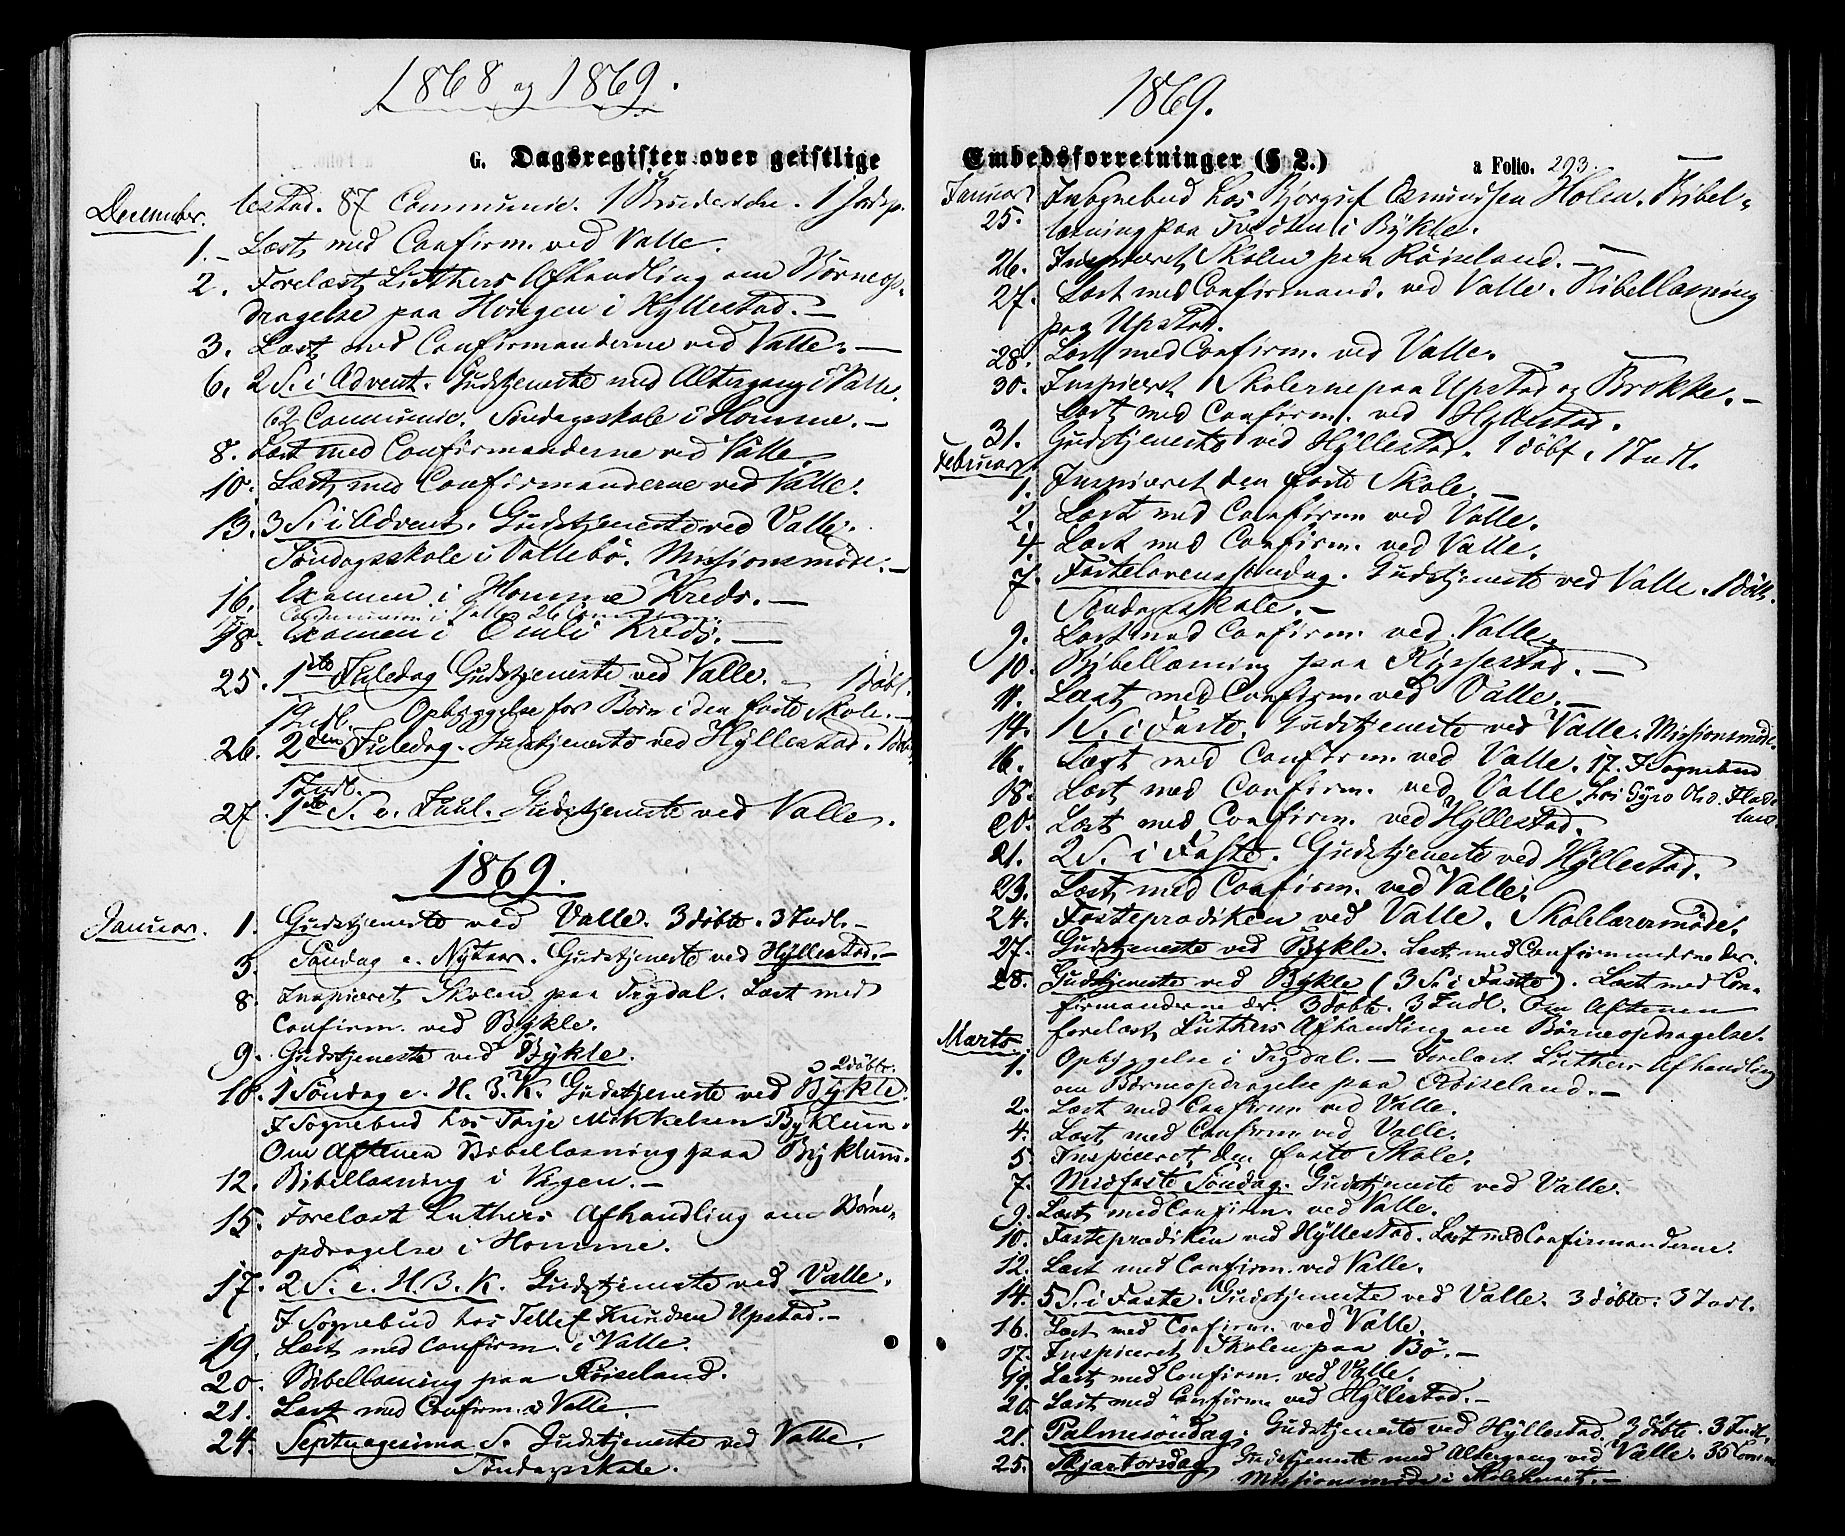 1868 og 1869.
G. Dagsregister over geistlige
December. lestad. 87 Communic. 1 Brudevielse. 1 Jordsp.
1. Læst med Confirm. ved Valle.
2. Forelæst Luthers Afhandling om Børneop-
dragelse paa Homgen i Hyllestad.
3. Læst med Confirmanderne ved Valle.
6. 2 S. i Advent. Gudstjeneste med Altergang i Valle.
62 Communic. Søndagsskole i Homme.
8. Læst med Confirmanderne ved Valle.
10. Læst med Confirmanderne ved Valle.
13. 3 S. i Advent. Gudstjeneste ved Valle.
Søndagsskole i Vallebø. Missionsmøde.
16. Examen i Homme Kreds.
Communion i Valle 26 Comm
18. Examen i Omli Kreds.
25. 1ste Juledag Gudstjeneste ved Valle. 1 døbt.
1 Indl. Opbyggelse for Børn i den faste Skole.
26. 2den Juledag. Gudstjeneste ved Hyllestad. 1 døbt
1 Indl.
27. 1ste S. e. Juul. Gudstjeneste ved Valle.
1869.
Januar. 1. Gudstjeneste ved Valle. 3 døbte. 3 Indl.
3. Søndag e. Nytaar. Gudstjeneste ved Hyllestad.
8. Inspiceret Skolen paa Trydal. Læst med
Confirm. ved Bykle.
9. Gudstjeneste ved Bykle.
2 døbte.
10. 1 Søndag e. H. 3. K. Gudstjeneste ved Bykle.
I Sognebud hos Tarje Mikkelsen Byklum.
Om Aftenen Bibellæsning paa Byklum.
12. Bibellæsning i Vigen.
15. Forelæst Luthers Afhandling om Børne-
opdragelse i Homme.
17. 2 S. e. H. 3. K. Gudstjeneste ved Valle.
I Sognebud hos Tellef Knudsen Upstad.
19. Læst med Confirm. i Valle.
20. Bibellæsning paa Røiseland.
21. Læst med Confirm. i Valle.
24. Septuagesima S. Gudstjeneste ved Valle.
Søndagsskole.
1869.
Embedsforretninger (§ 2.) a Folio. 293.
Januar 25. I Sognebud hos Bjørguf Osmundsen Holen. Bibel-
læsning paa Tveiten i Bykle.
26. Inspiceret Skolen paa Røiseland.
27. Læst med Confirmand. ved Valle. Bibellæsning
paa Upstad.
28. Læst med Confirm. ved Valle.
30. Inspiceret Skolerne paa Upstad og Brokke.
Læst med Confirm. ved Hyllestad.
31. Gudstjeneste ved Hyllestad. 1 døbt. 1 Indl.
Februar
1. Inspiceret den faste Skole.
2. Læst med Confirm ved Valle.
4. Læst med Confirm. ved Valle.
7. Fastelavenssøndag. Gudstjeneste ved Valle. 1 døbt.
Søndagsskole.
9. Læst med Confirm. ved Valle.
10. Bibellæsning paa Rysstad.
11. Læst med Confirm. ved Valle.
14. 1 S. i Faste. Gudstjeneste ved Valle. Missionsmøde.
16. Læst med Confirm. ved Valle. 17. I Sognebud
18. Læst med Confirm. ved Valle. hos Gyro Olsd. Flade-
land.
20. Læst med Confirm. ved Hyllestad.
21. 2 S. i Faste. Gudstjeneste ved Hyllestad.
23. Læst med Confirm. ved Valle.
24. Fasteprædiken ved Valle. Skolelærermøde.
27. Gudstjeneste ved Bykle. Læst med Confirmanderne der.
28. Gudstjeneste ved Bykle (3 S. i Faste). Læst med Con-
firmanderne der. 3 døbte. 3 Indl. Om Aftenen
forelæst Luthers Afhandling om Børneopdragelse.
Marts
1. Opbyggelse i Trydal. – Forelæst Luthers Afhandling
om Børneopdragelse paa Røiseland.
2. Læst med Confirm. ved Valle.
4. Læst med Confirm. ved Valle.
5. Inspiceret den faste Skole.
7. Midfaste Søndag. Gudstjeneste ved Valle.
9. Læst med Confirm. ved Valle.
10. Fasteprædiken ved Hyllestad. Læst med Confirmanderne.
12. Læst med Confirm. ved Valle.
14. 5 S. i Faste. Gudstjeneste ved Valle. 3 døbte. 3 Indl.
16. Læst med Confirm. ved Valle.
17. Inspiceret Skolen paa Bø.
19. Læst med Confirm. ved Valle.
20. Læst med Confirm. ved Hyllestad.
21. Palmesøndag. Gudstjeneste ved Hyllestad. 3 døbte. 3 Indl.
25. Skjærtorsdag. Gudstjeneste med Altergang ved Valle. 35 Comm
Missionsmøde i Skolehuset.